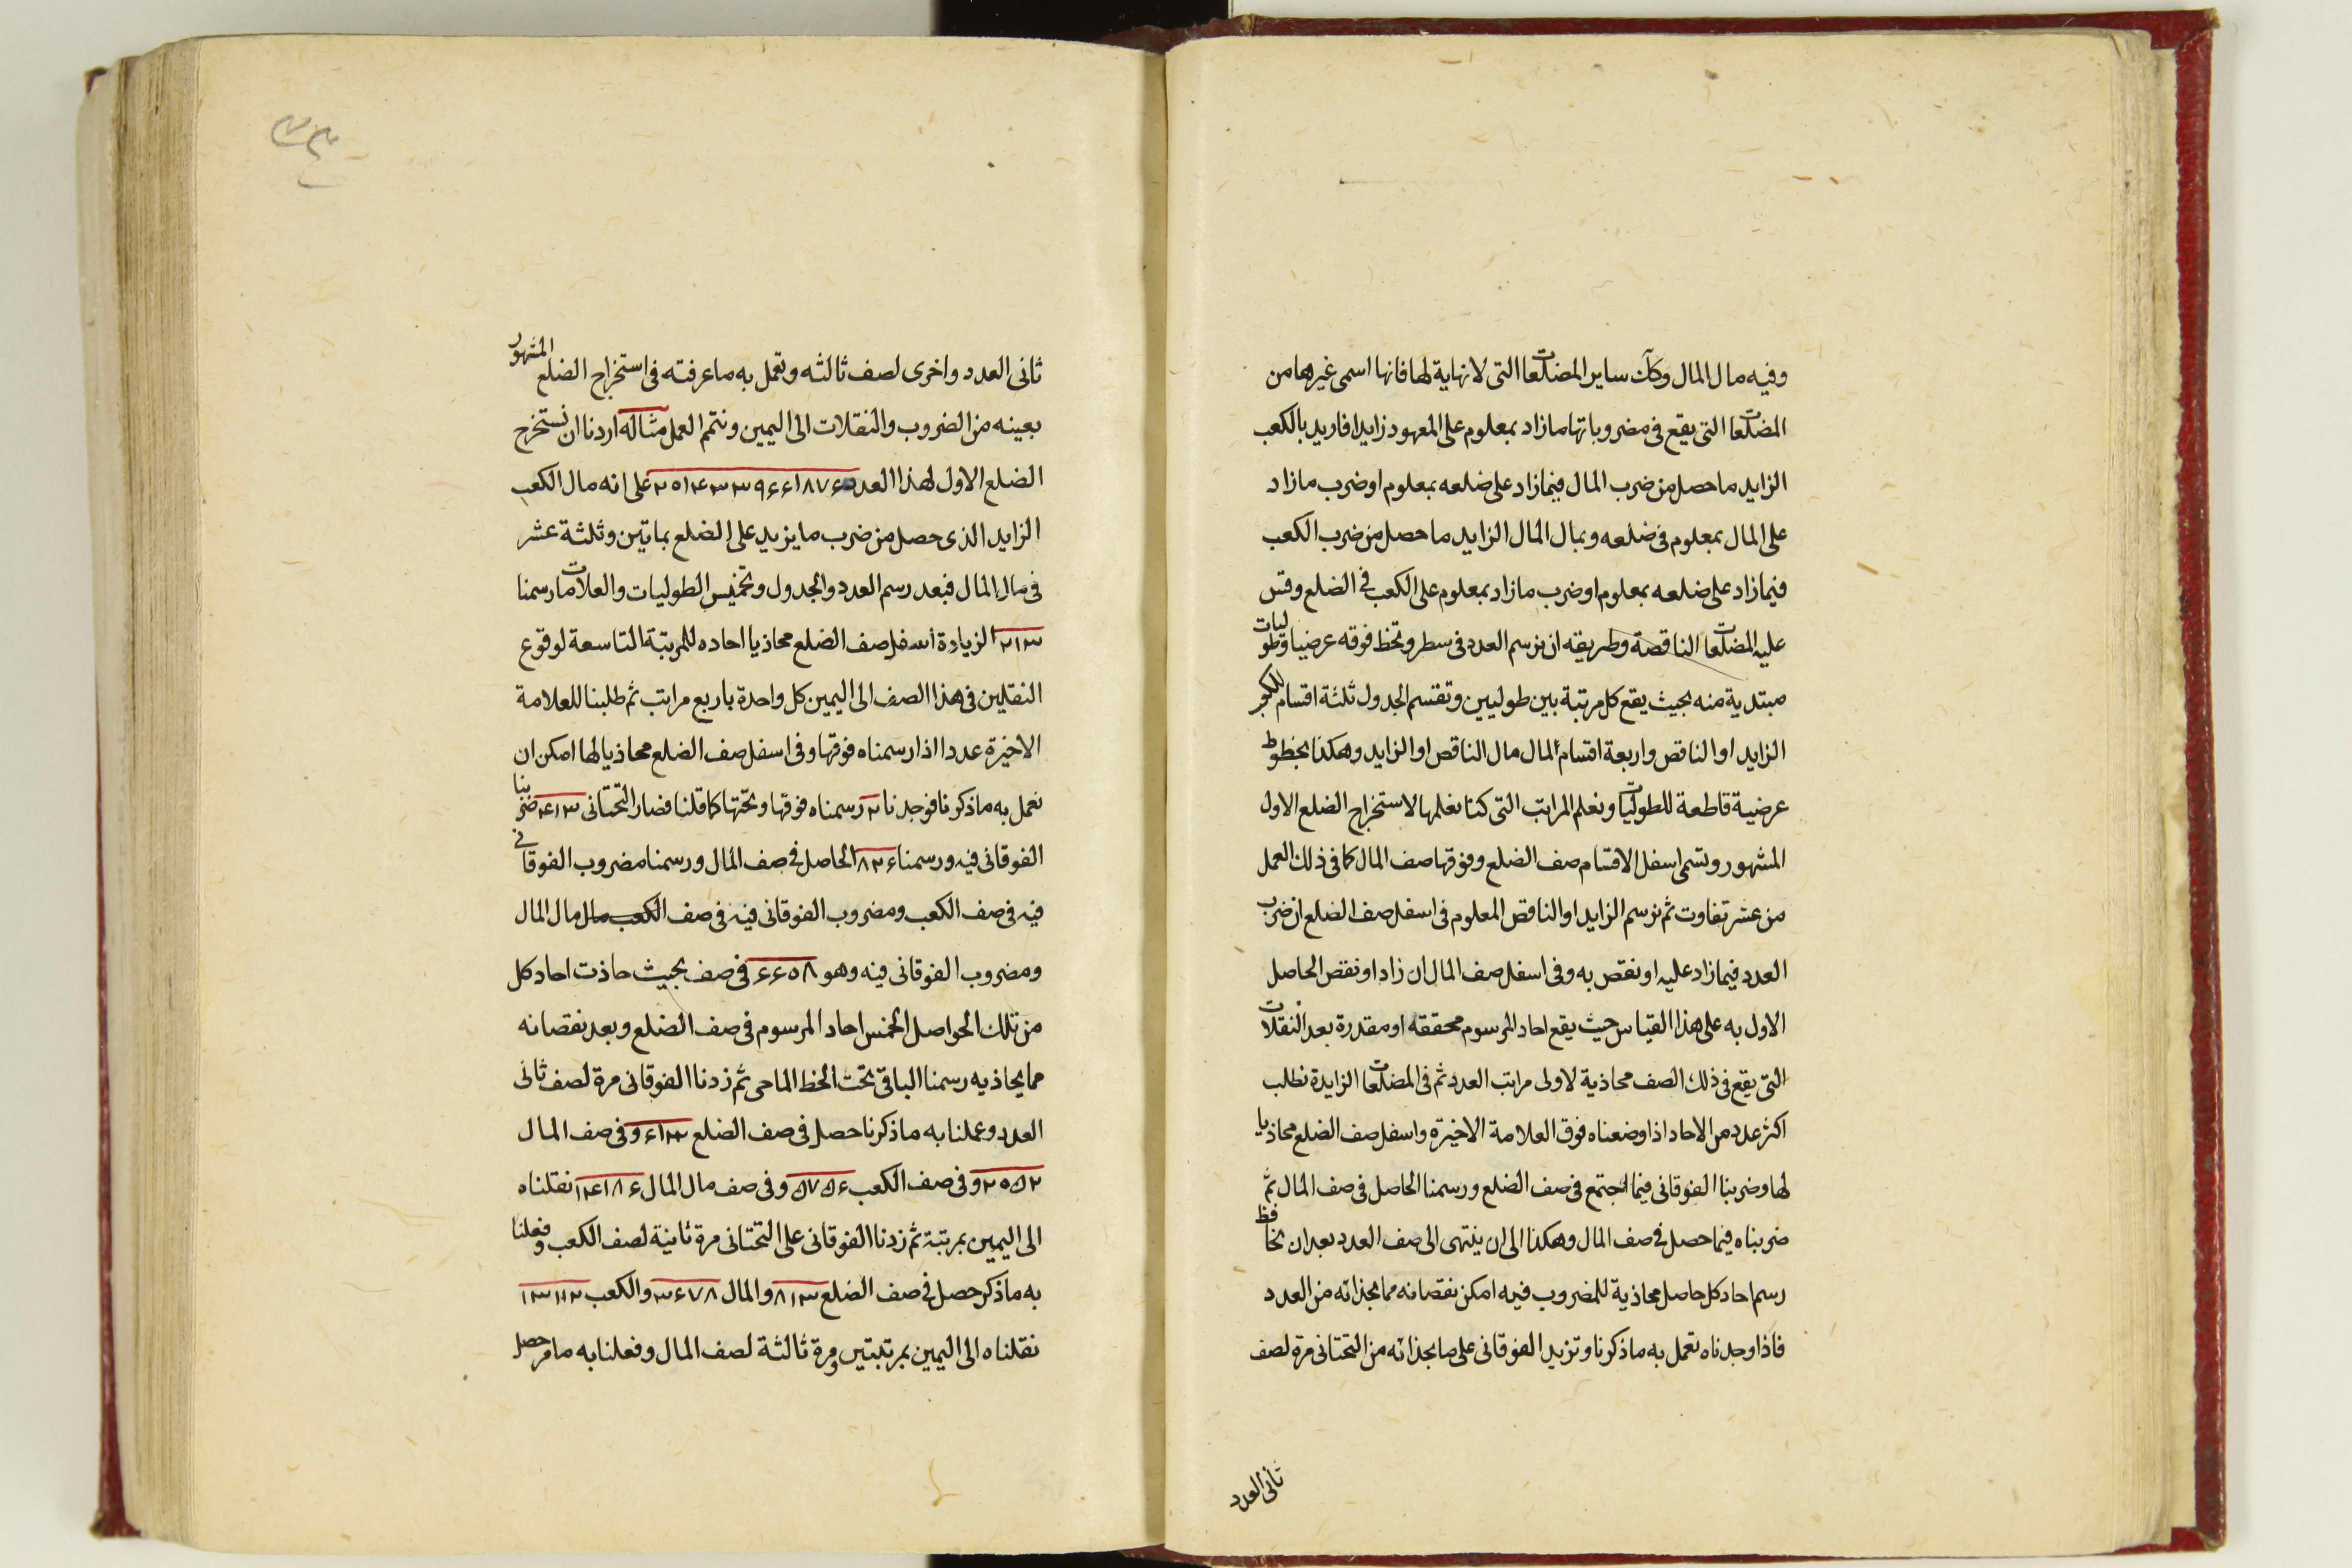 وفيه مال المال وكك ساير المضلعات التى لا نهاية لها فانها اسمى غيرها من
المضلعات التى يقع فى مضروباتها ما زاد بمعلوم على المعهود زايدا فاريد بالكعب
الزايد ما حصل من ضرب المال فيما زاد على ضلعه بمعلوم او ضرب ما زاد
على المال بمعلوم فى ضلعه وبمال المال الزايد ما حصل من ضرب الكعب
فيما زاد على ضلعه بمعلوم او ضرب ما زاد بمعلوم على الكعب فى الضلع وقس
عليه المضلعات الناقصة وطريقه ان نرسم العدد فى سطر ونخط فوقه عرضيا وطوليات
مبتدية منه بحيث يقع كل مرتبة بين طوليين ونقسم الجدول ثلثة اقسام للكعب
الزايد او الناقص واربعة اقسام لمال مال الناقص او الزايد وهكذا بخطوط
عرضية قاطعة للطوليات ونعلم المراتب التى كنا نعلمها لاستخراج الضلع الاول
المشهور ونسمى اسفل الاقسام صف الضلع وفوقها صف المال كما فى ذلك العمل
من عشر تفاوت ثم نرسم الزايد او الناقص المعلوم فى اسفل صف الضلع ان ضرب
العدد فيما زاد عليه او نقص به وفى اسفل صف المال ان زاد او نقص الحاصل
الاول به على هذا القياس حيث يقع احاد المرسوم محققه او مقدرة بعد النقلات
التى يقع فى ذلك الصف محاذية لاولى مراتب العدد ثم فى المضلعات الزايدة نطلب
اكثر عدد من الاحاد اذا وضعناه فوق العلامة الاخيرة واسفل صف الضلع محاذيا
لها وضربنا الفوقانى فيما اجتمع فى صف الضلع ورسمنا الحاصل فى صف المال ثم
ضربناه فيما حصل فى صف المال وهكذا الى ان ينتهى الى صف العدد بعد ان نحافظ
رسم احاد كل حاصل محاذية للمضروب فيه امكن نقصانه مما بحذائه من العدد
فاذا وجدناه نعمل به ما ذكرنا ونزيد الفوقانى على ما بحذائه من التحتانى مرة لصف
ثانى العدد
ثانى العدد واخرى لصف ثالثه ونعمل به ما عرفته فى استخراج الضلع المشهور
بعينه من الضروب والنقلات الى اليمين ونتمم العمل مثاله اردنا ان نستخرج
الضلع الاول لهذا العدد على انه مال الكعب
الزايد الذى حصل من ضرب ما يزيد على الضلع بماتين وثلثة عشر
فى مال المال فبعد رسم العدد والجدول وتخميس الطوليات والعلامات رسمنا
٢١٣ الزيادة اسفل صف الضلع محاذيا احاده للمرتبة التاسعة لوقوع
النقلين فى هذا الصف الى اليمين كل واحدة باربع مراتب ثم طلبنا للعلامة
الاخيرة عددا اذا رسمناه فوقها وفى اسفل صف الضلع محاذيا لها امكن ان
نعمل به ما ذكرنا فوجدنا ٢ رسمناه فوقها وتحتها كما قلنا فصار التحتانى ٤١٣ ضربنا
الفوقانى فيه ورسمنا ٨٢٦ الحاصل فى صف المال ورسمنا مضروب الفوقانى
فيه فى صف الكعب ومضروب الفوقانى فيه فى صف الكعب مال مال المال
ومضروب الفوقانى فيه وهو ٦٦٠٨ فى صف بحيث حاذت احاد كل
من تلك الحواصل الخمس احاد المرسوم فى صف الضلع وبعد نقصانه
مما يحاذيه رسمنا الباقى تحت الخط الماحى ثم زدنا الفوقانى مرة لصف ثانى
العدد وعملنا به ما ذكرنا حصل فى صف الضلع ٦١٣ وفى صف المال
وفى صف الكعب وفى صف مال المال نقلناه
الى اليمين بمرتبة ثم زدنا الفوقانى على التحتانى مرة ثانية لصف الكعب وفعلنا
به ما ذكر حصل فى صف الضلع ٨١٣ والمال ٣٦٧٨ والكعب ١٣١١٢
نقلناه الى اليمين بمرتبتين ومرة ثالثة لصف المال وفعلنا به ما مر حصل